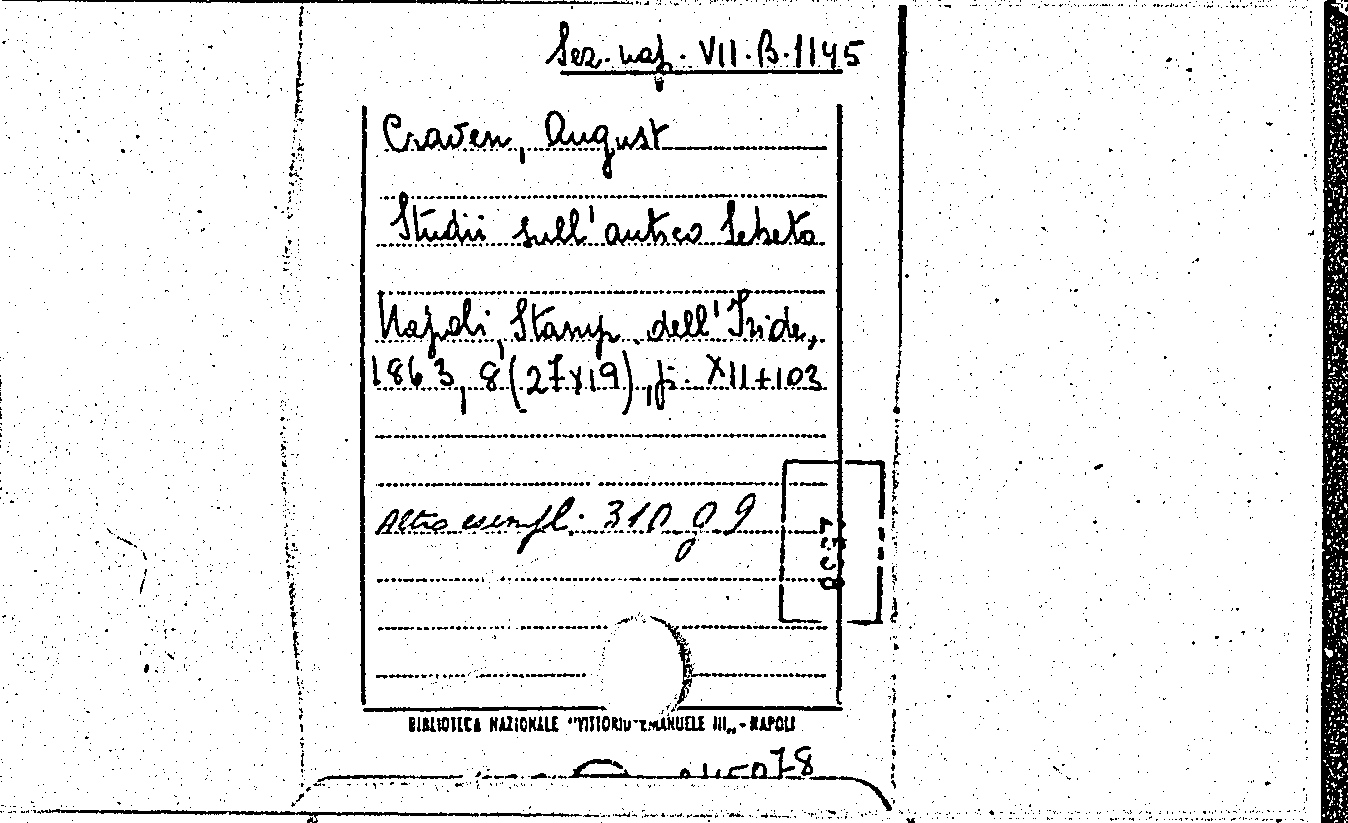 Sez. nap. VII.B.1145
Craven, August
Studii sull'antico Sebeto
Napoli, Stamp. dell'Iride,
1863, 8(27x19), p. XII+103
Altro esempl. 310. 9
BIBLIOTECA NAZIONALE "VITTORIO EMANUELE III„ - NAPOLI